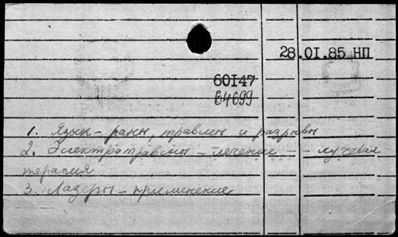 28.01.85 НП
60147
64699
1. Язык – раны, травмы и разрывы
2. Электротравмы – лечение – лучевая
терапия
3. Лазеры – применение